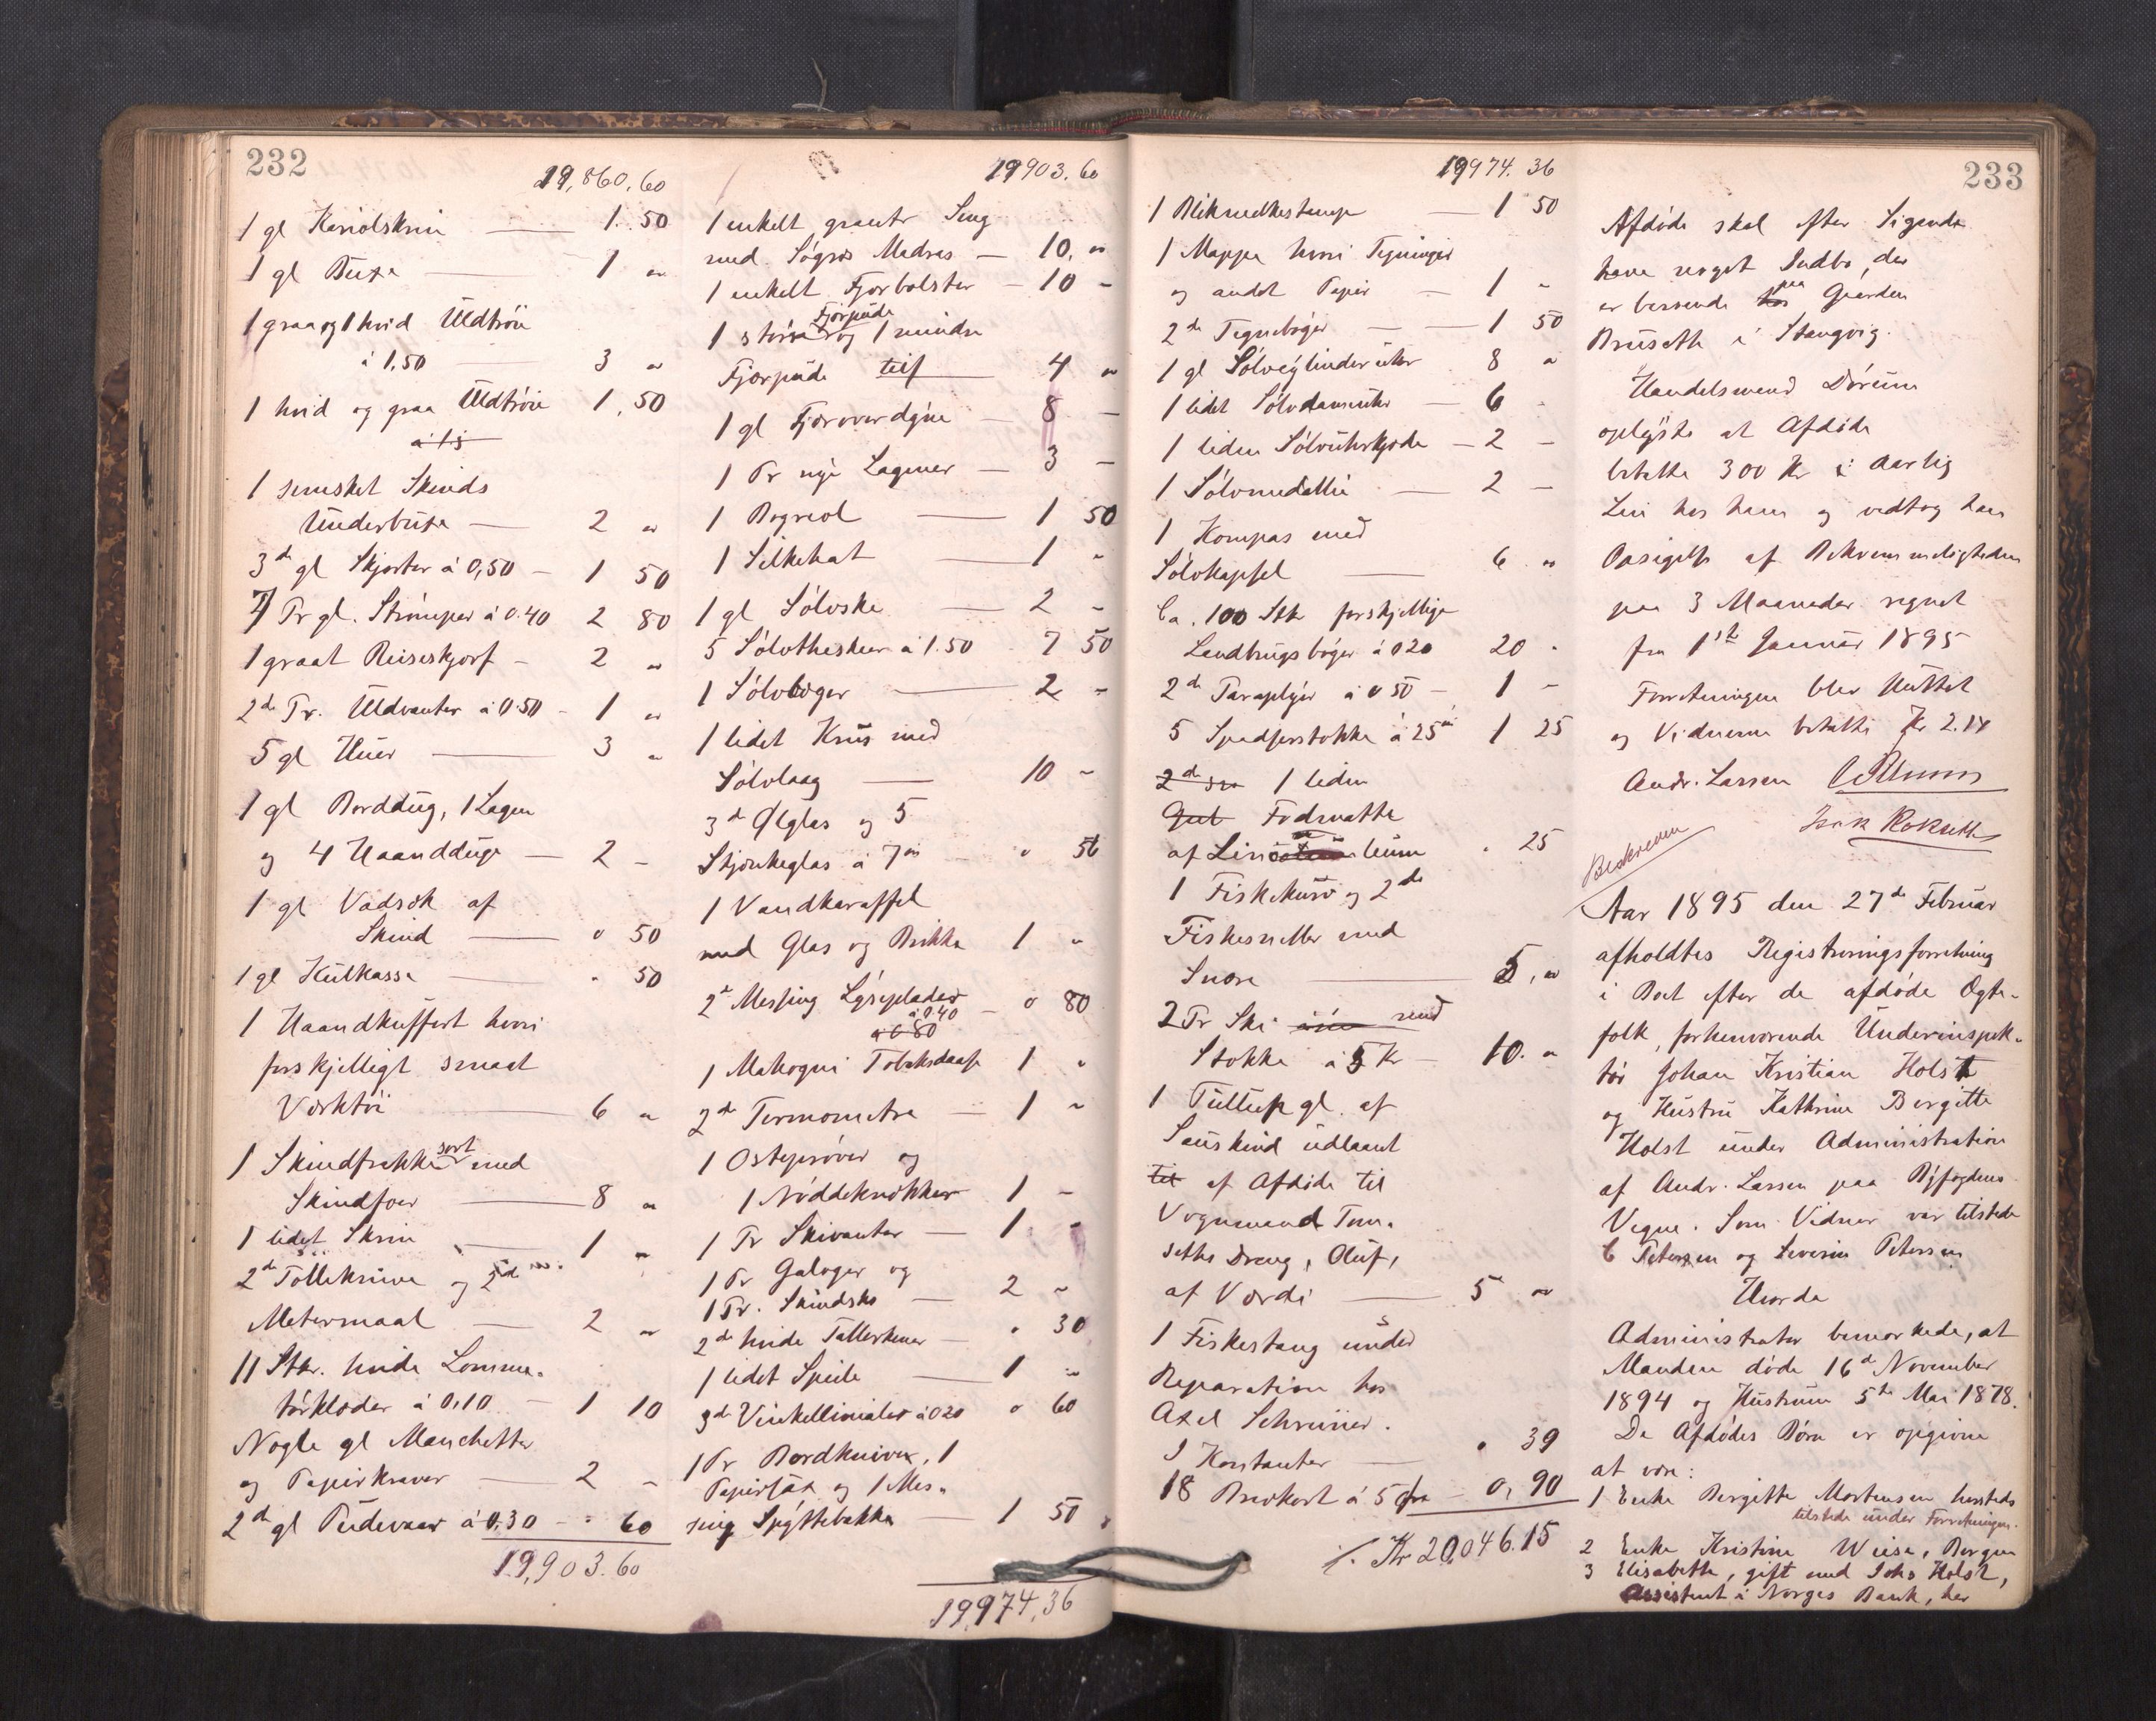 232
19,860.60
1 gl Kariolskrin — 1. 50
1 gl Buxe — 1 "
1 graa og 1 hvid Uldtröie
à 1,50 — 3 "
1 hvid og graa Uldtröie 1,50
à 1,5
1 semsket Skinds
Underbuxe — 2 "
3de gl Skjorter à 0,50 — 1 50
7 Pr gl. Strömper à 0.40 2 80
1 graat Reiseskjerf — 2 "
2de Pr. Uldvanter à 0.50 — 1 "
5 gl Huer — 3 "
1 gl Borddug, 1 Lagen
og 4 Haandduge — 2 "
1 gl Vadsæk af
Skind — 0 50
1 gl Kulkasse — " 50
1 Haandkuffert hvori
forskjelligt smaat
Værktöi — 6 "
1 Skindfrakke sort med
Skindfoer — 8 "
1 lidet Skrin — 1 "
2de Tolleknive og 2de
Metermaal — 2 "
11 Stkr. hvide Lomme-
törklæder à 0,10 — 1 10
Nogle gl Manchetter
og Papirkraver — 2 "
2de gl Pudevaar à 0,30 — " 60
19,903.60
19903.60
1 enkelt Seng
med Sögræs Madras — 10,"
1 enkelt Fjærbolster — 10 "
1 större Fjærpude og 1 mindre
Fjærpude tils — 4 "
1 gl Fjæroverdyne — 8 "
1 Pr nye Lagener — 3 "
1 Bogreol — 1 50
1 Silkehat — 1 "
1 gl Sölvske — 2 "
5 Sölvtheskeer à 1.50 7 50
1 Sölvbæger — 2 "
1 lidet Krus med
Sölvlaag — 10 "
3de Ølglas og 5
Skjænkeglas à 7 " 0 56
1 Vandkaraffel
med Glas og Brikke 1 "
2de Messing Lyseplader — 0 80
à 0.40
à 0 80
1 Mahogni Tobaksdaase 1 "
2de Termometre — 1 "
1 Osteprøver og
1 Nöddeknækker 1 "
1 Pr Skivanter — 1 "
1 Pr Galoger og
1 Pr. Skindsko — 2 "
2de hvide Tallerkener — " 30
1 lidet Speile — 1 "
3de Vinkellinialer à 020 0 60
1 Pr Bordkniver, 1
Papirsax og 1 Mes-
sing Spyttebakke — 1 50
19,974,36
19974.36
1 — 1 50
1 Mappe hvori Tegninger
og andet Papir — 1 "
2de Tegneböger — 1 50
1 gl Sölvcylinderuhr 8 "
1 lidet Sölvdameuhr — 6 "
1 liden Sölvuhrkjæde — 2 "
1 Sölvmedallie — 2 "
1 Kompas med
Sölvkapsel — 6 "
Ca. 100 Stk forskjellige
Landbrugsböger à 020 20 "
2de Paraplyer à 0 50 — 1 "
5 Spadserstokke à 25 1 25
2de 1 liden
Fodmatte
af Linoleum " 25
1 Fiskekurv og 2de
Fiskesneller med
Snøre — 5,"
2 Pr Ski med
Stokke à 5 Kr — 10."
1 Tullup gl. af
Saueskind udlaant
til af Afdöde til
Vognmand Tom-
seths Dreng, Oluf,
af Værdi — 5 "
1 Fiskestang under
Reparation hos
Axel Schreiner.
I Kontanter — " 39
18 Brevkort à 5 öre — 0,90
/. Kr 20,046.15
233
Afdöde skal efter Sigende
have noget Indbo, der
er beroende hos paa Gaarden
Bruseth i Stangvig.
Handelsmand Dörum
oplyste at Afdöde
betalte 300 Kr i aarlig
Leie hos ham og vedtog han
Opsigelse af Bekvemmeligheden
paa 3 Maaneder regnet
fra 1ste Januar 1895
Forretningen blev sluttet
og Vidnerne betalte Kr 2.
Andr. Larsen
Isak Roksett
Beskreven
Aar 1895 den 27de Februar
afholdtes Registreringsforretning
i Boet efter de afdöde Ægte-
folk, forhenværende Underinspek-
tör Johan Kristian Holst
og Hustru Kathrine Bergitte
Holst under Administration
af Andr. Larsen paa Byfogdens
Vegne. Som Vidner var tilstede
C Petersen og Severin Petersen
Hvorda
Administrator bemærkede, at
Manden döde 16de November
1894 og Hustruen 5te Mai 1878.
De Afdödes Börn er opgivne
at være:
1 Enke Bergitte Mortensen hersteds
tilstede under Forretningen.
2 Enke Kristine Wiese, Bergen
3 Elisabeth, gift med Johs Holst,
Assistent i Norges Bank, her